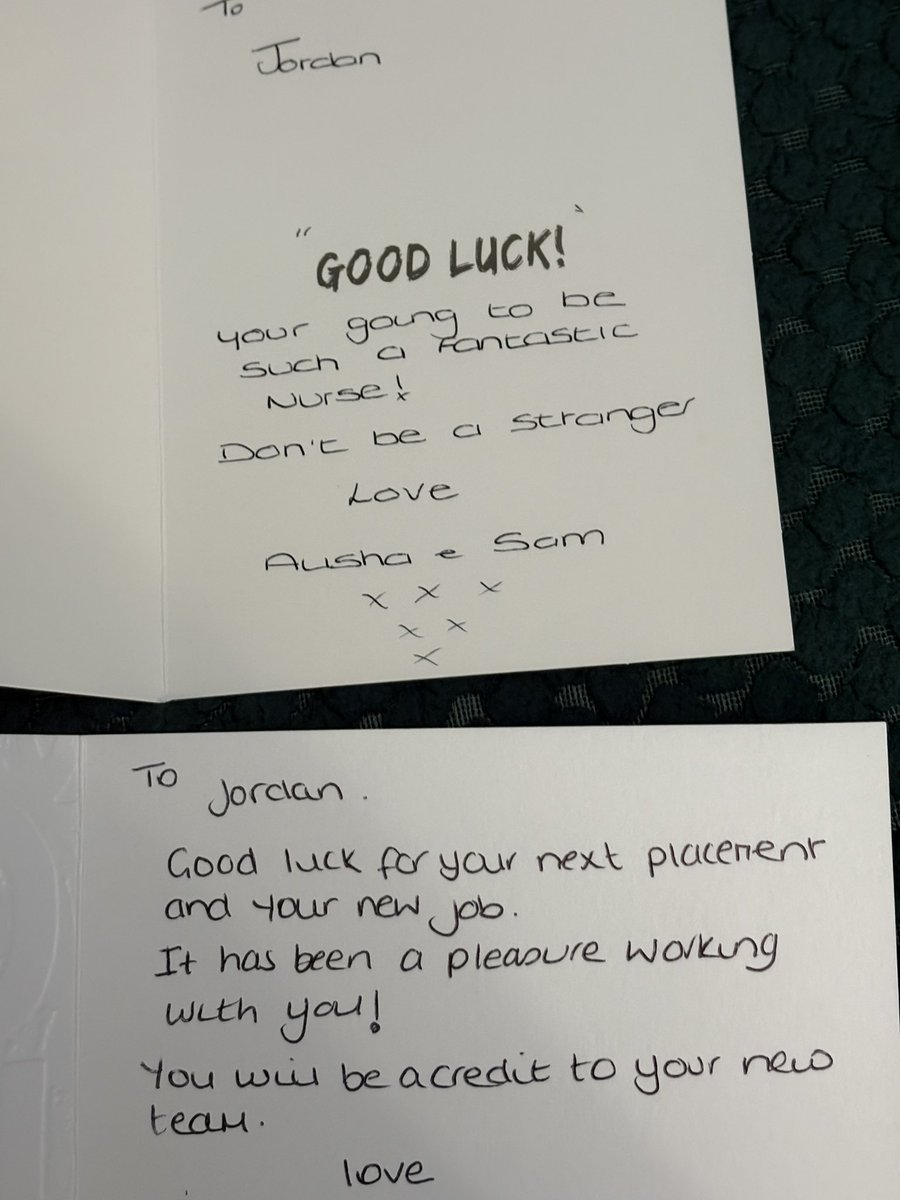 To
Jordan
"GOOD LUCK!"
your going to be
such a fantastic
Nurse!
Don't be a stranger
Love
Alisha & Sam
x x x
x x
x
To Jordan.
Good luck for your next placement
and your new job.
It has been a pleasure working
with you!
You will be a credit to your new
team.
love